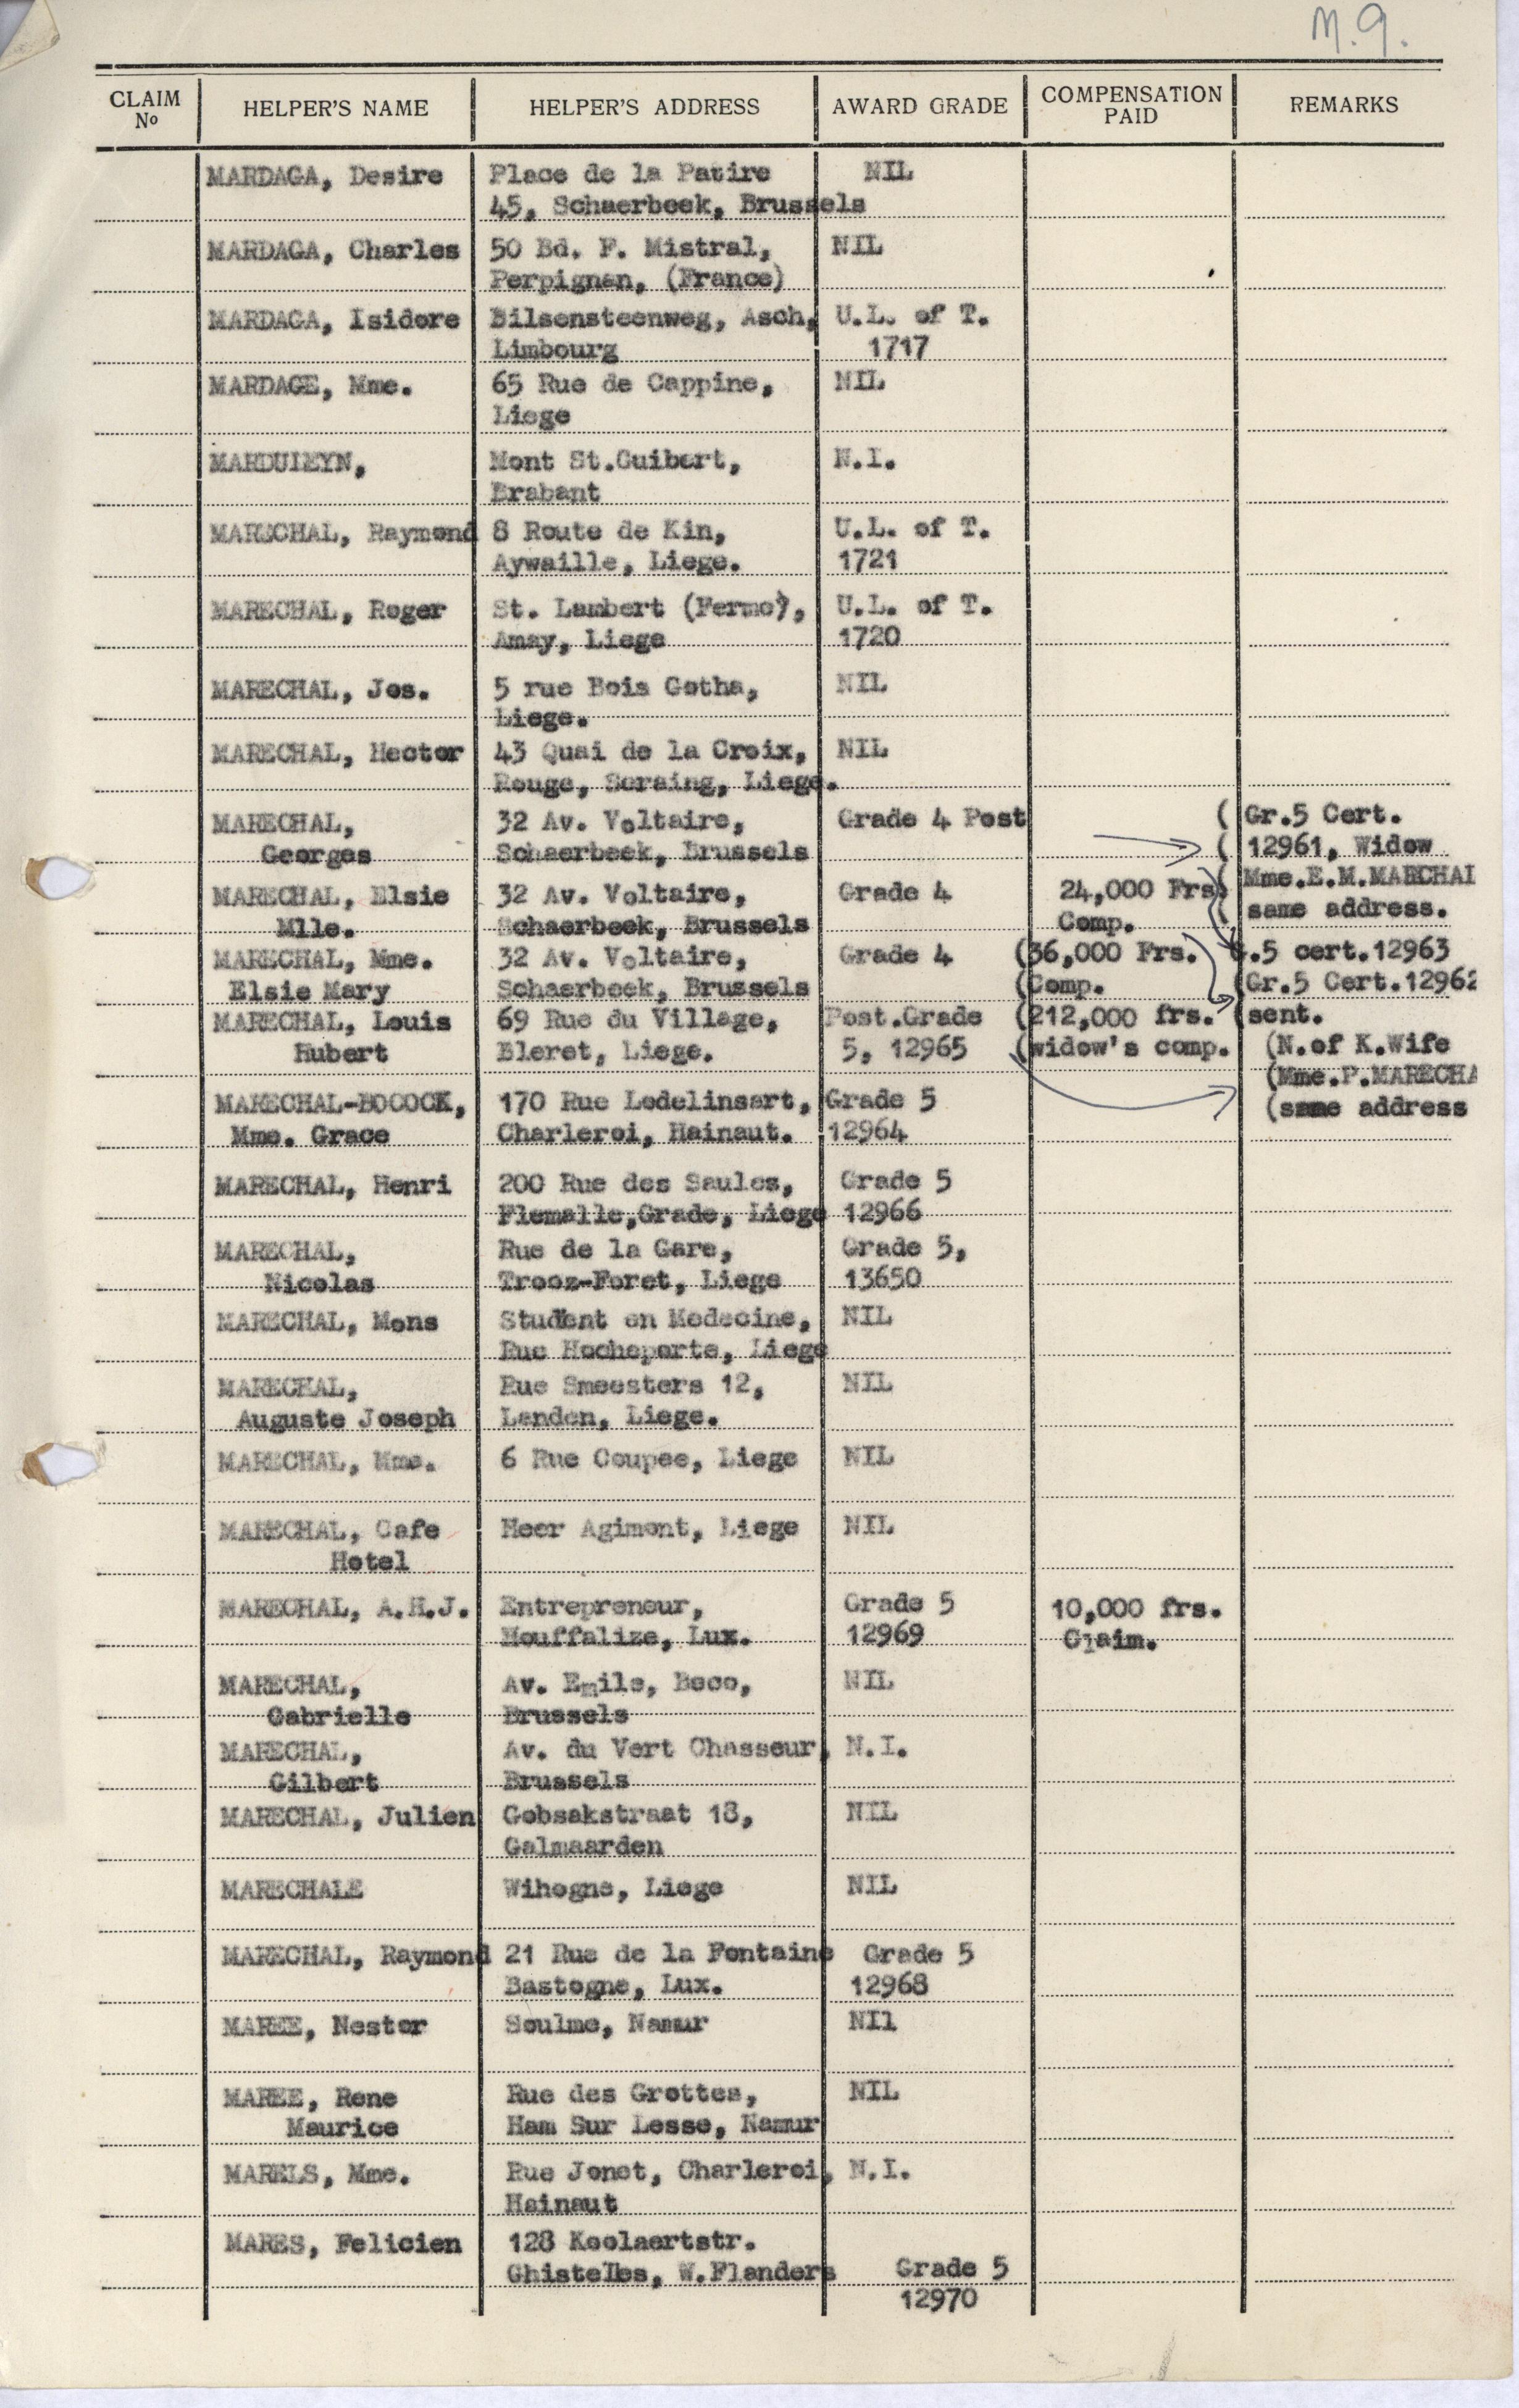 M.9.
CLAIM No HELPER'S NAME HELPER'S ADDRESS AWARD GRADE COMPENSATION PAID REMARKS
MARDAGA, Desire Place de la Patire NIL
45, Schaerbeek, Brussels
MARDAGA, Charles 50 Bd. F. Mistral, NIL
Perpignan, (France)
MARDAGA, Isidore Bilsensteenweg, Asch, U.L. of T.
Limbourg 1717
MARDAGE, Mme. 65 Rue de Cappine, NIL
Liege
MARDUIEYN, Mont St.Guibert, N.I.
Brabant
MARECHAL, Raymond 8 Route de Kin, U.L. of T.
Aywaille, Liege. 1721
MARECHAL, Roger St. Lambert (Ferme), U.L. of T.
Amay, Liege 1720
MARECHAL, Jos. 5 rue Bois Gotha, NIL
Liege.
MARECHAL, Hector 43 Quai de la Croix, NIL
Rouge, Seraing, Liege.
MARECHAL, 32 Av. Voltaire, Grade 4 Post ( Gr.5 Cert.
Georges Schaerbeek, Brussels ( 12961, Widow
MARECHAL, Elsie 32 Av. Voltaire, Grade 4 24,000 Frs) ( Mme.E.M.MARCHAL
Mlle. Schaerbeek, Brussels Comp. ( same address.
MARECHAL, Mme. 32 Av. Voltaire, Grade 4 (36,000 Frs. G.5 cert.12963
Elsie Mary Schaerbeek, Brussels (Comp. (Gr.5 Cert.12962
MARECHAL, Louis 69 Rue du Village, Post.Grade (212,000 frs. (sent.
Hubert Bleret, Liege. 5, 12965 (widow's comp. (N.of K.Wife
(Mme.P.MARECHA
MARECHAL-BOCOCK, 170 Rue Lodelinsart, Grade 5 (same address
Mme. Grace Charleroi, Hainaut. 12964
MARECHAL, Henri 200 Rue des Saules, Grade 5
Flemalle,Grade, Liege 12966
MARECHAL, Rue de la Gare, Grade 5,
Nicolas Trooz-Foret, Liege 13650
MARECHAL, Mons Student en Medecine, NIL
Rue Hocheporte, Liege
MARECHAL, Rue Smeesters 12, NIL
Auguste Joseph Landen, Liege.
MARECHAL, Mme. 6 Rue Coupee, Liege NIL
MARECHAL, Cafe Heer Agimont, Liege NIL
Hotel
MARECHAL, A.H.J. Entrepreneur, Grade 5 10,000 frs.
Houffalize, Lux. 12969 Claim.
MARECHAL, Av. Emile, Beco, NIL
Gabrielle Brussels
MARECHAL, Av. du Vert Chasseur, N.I.
Gilbert Brussels
MARECHAL, Julien Gobsakstraat 18, NIL
Galmaarden
MARECHALE Wihogne, Liege NIL
MARECHAL, Raymond 21 Rue de la Fontaine Grade 5
Bastogne, Lux. 12968
MAREE, Nestor Soulme, Namur NIl
MAREE, Rene Rue des Grottes, NIL
Maurice Ham Sur Lesse, Namur
MARELS, Mme. Rue Jonet, Charleroi, N.I.
Hainaut
MARES, Felicien 128 Koolaertstr.
Ghistelles, W.Flanders Grade 5
12970